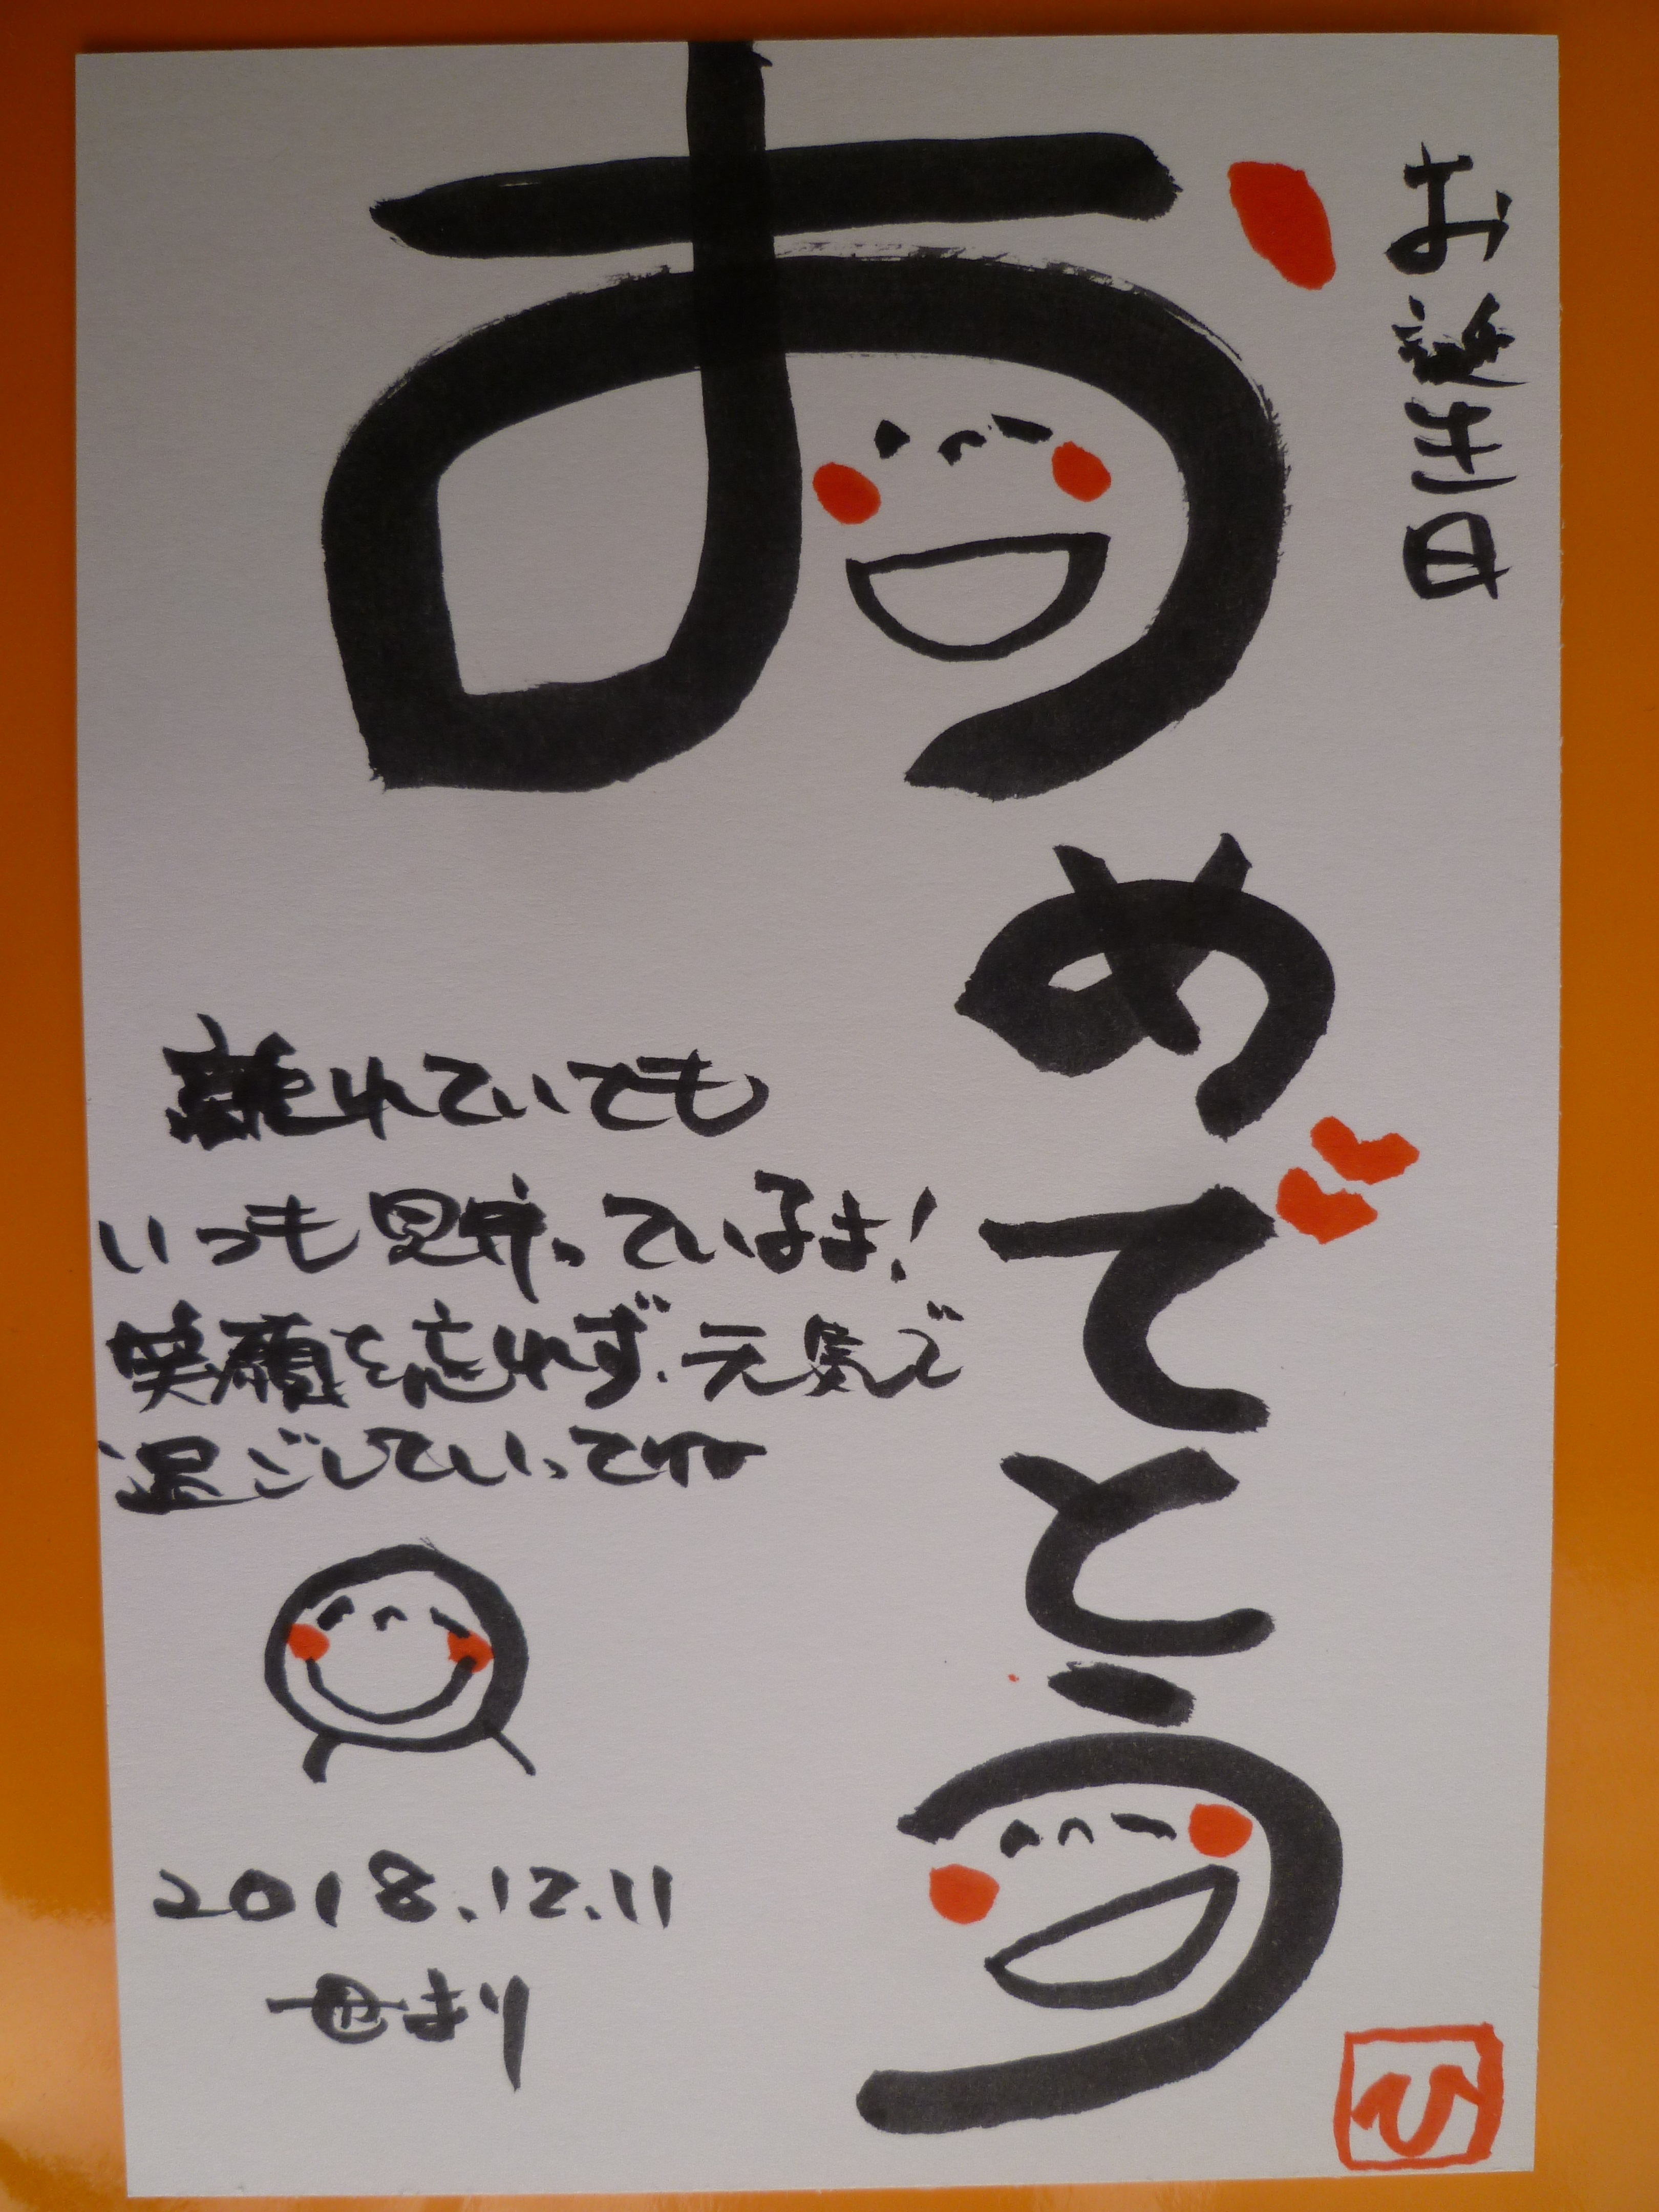 お誕生日
おめでとう
離れていても
いつも見守っているよ!
笑顔を忘れず、元気で
過ごしていってね
2018.12.11
母より
ひ